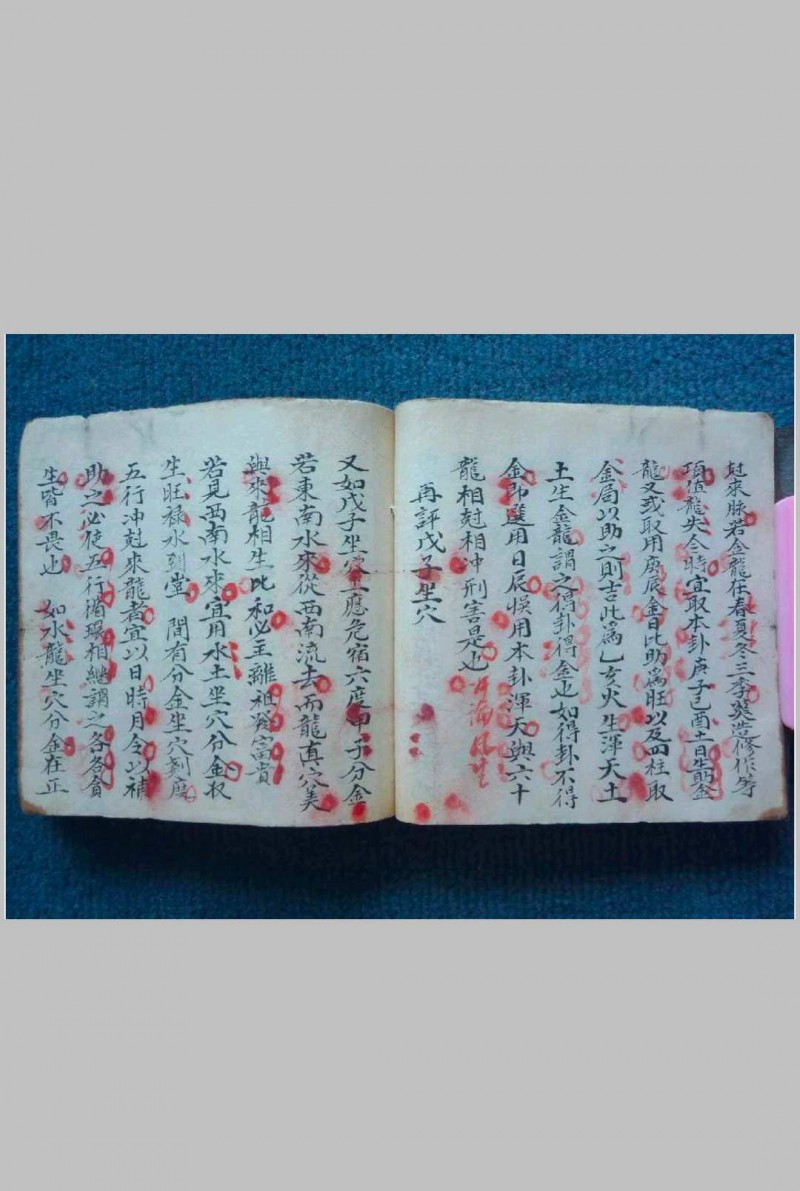 尅來脉若金龍在春夏冬三季葬造修作等
項值龍失令時宜取本卦庚子己酉土日生助金
龍又或取用庚辰金日比助為旺以及四柱取
金局以助之則吉此為乙亥火生渾天土
土生金龍謂之得卦得金也如得卦不得
金即選用日辰悞用本卦渾天與六十
龍相尅相冲刑害是也
再評戊子坐穴
又如戊子坐穴應危宿六度甲子分金
若東南水來從西南流去而龍真穴美
與來龍相生比和必主離祖發富貴
若見西南水來宜用水土坐穴分金収
生旺祿水到堂 間有分金坐穴刻度
五行冲尅來龍者宜以日時月令以補
助之必使五行循環相繼謂之各各負
生皆不畏也 如水龍坐穴分金在正